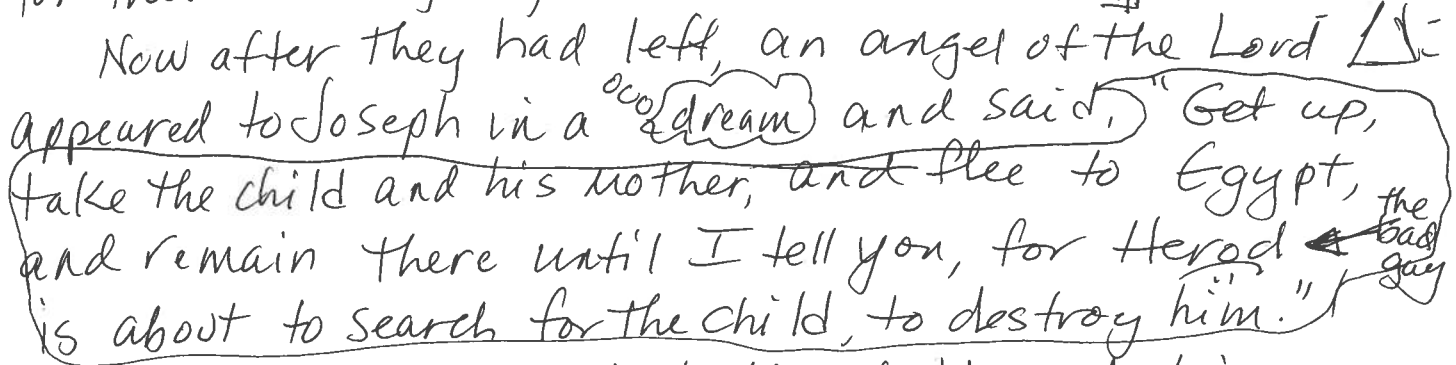 Now after they had left, an angel of the Lord
appeared to Joseph in a dream and said, "Get up,
take the child and his mother, and flee to Egypt,
and remain there until I tell you, for Herod
the bad guy
is about to search for the child, to destroy him."